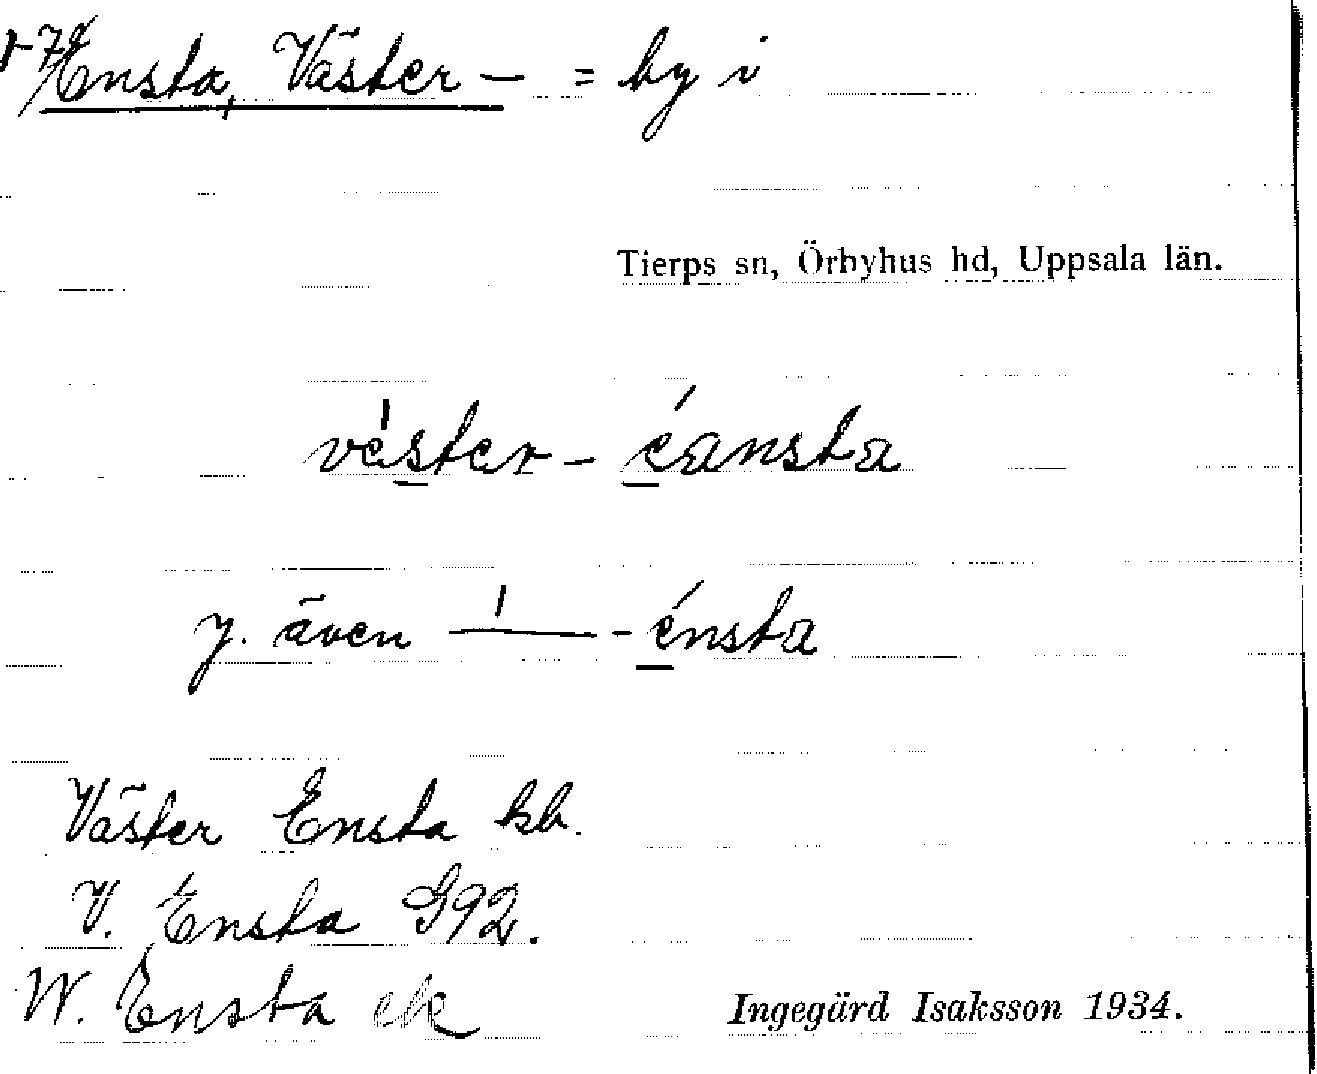 Ensta, Väster – = by i
Tierps sn, Örbyhus hd, Uppsala län.
véster - éansta
y. även —— - énsta
Väster Ensta kb.
V. Ensta G92.
W. Ensta ek
Ingegärd Isaksson 1934.